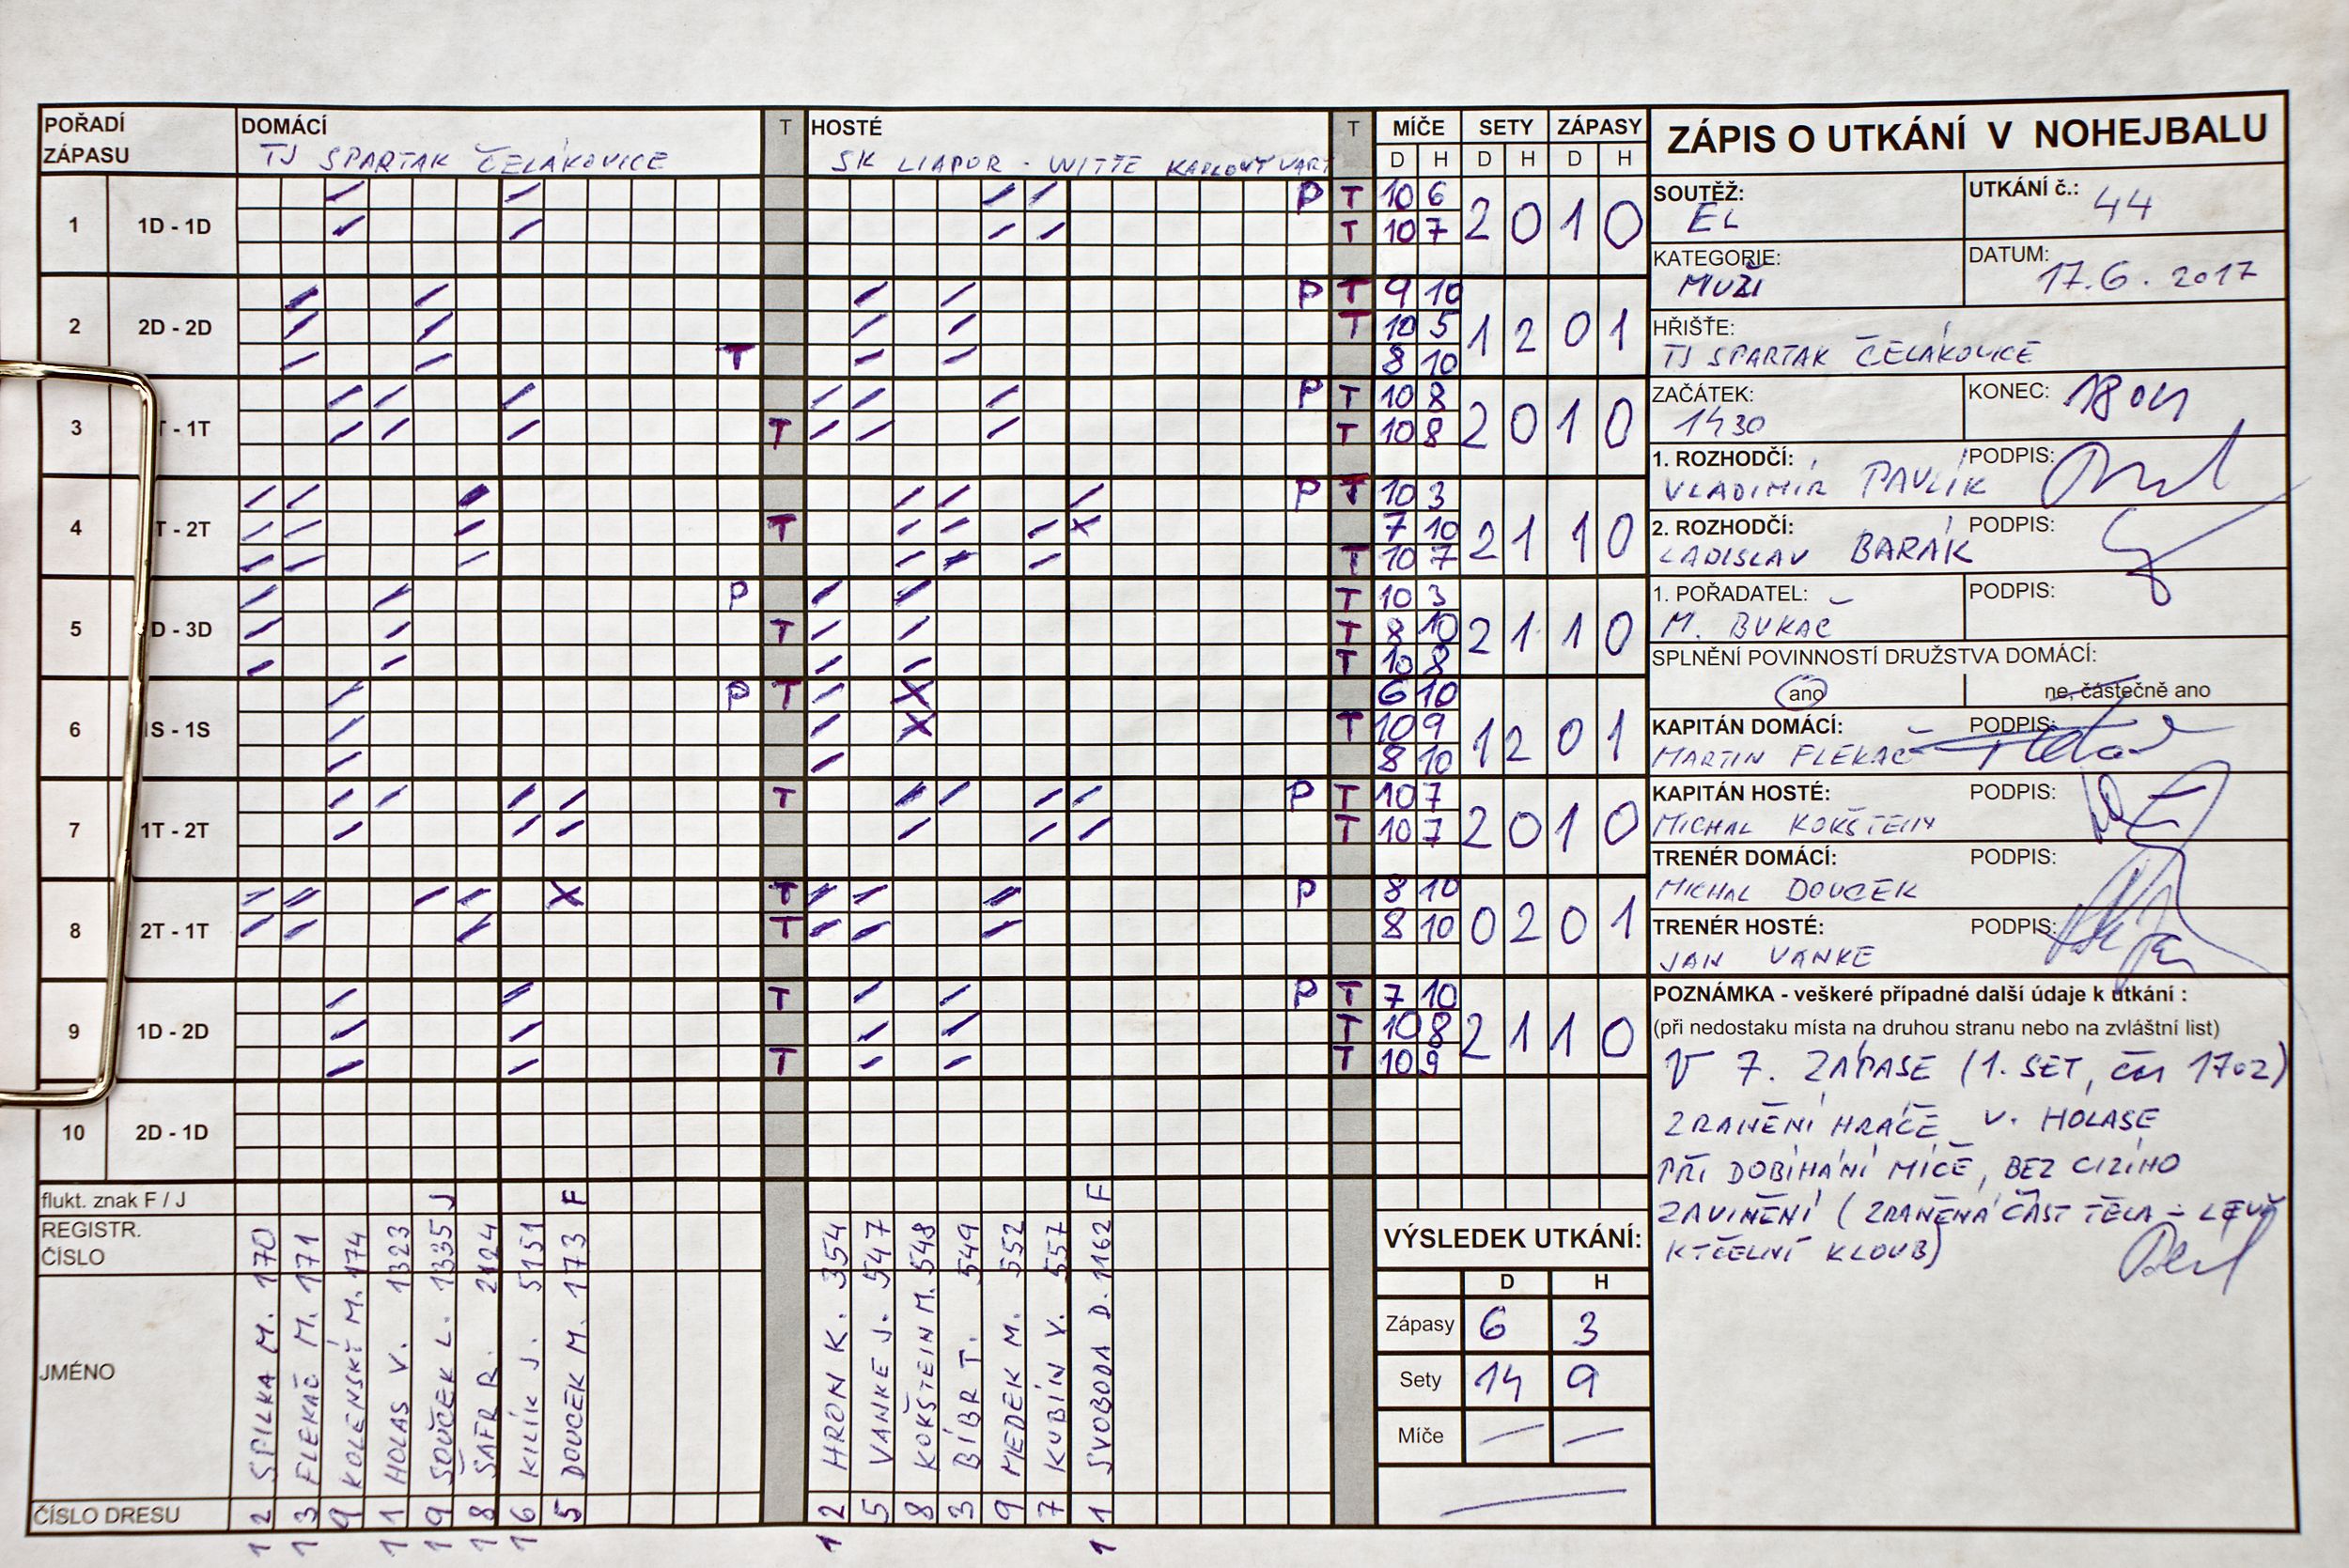 POŘADÍ ZÁPASU
DOMÁCÍ T HOSTÉ T
TJ SPARTAK ČELÁKOVICE
SK LIAPOR - WITTE KARLOVY VARY
MÍČE SETY ZÁPASY
D H D H D H
1 1D - 1D P T 10 6 2 0 1 0
T 10 7
2 2D - 2D P T 9 10 1 2 0 1
T 10 5
T 8 10
3 T - 1T P T 10 8 2 0 1 0
T T 10 8
4 T - 2T P T 10 3 2 1 1 0
T 7 10
T 10 7
5 D - 3D P T 10 3 2 1 1 0
T T 8 10
T 10 8
6 1S - 1S P T 6 10 1 2 0 1
T 10 9
8 10
7 1T - 2T T P T 10 7 2 0 1 0
T 10 7
8 2T - 1T T P 8 10 0 2 0 1
T 8 10
9 1D - 2D T P T 7 10 2 1 1 0
T 10 8
T T 10 9
10 2D - 1D
flukt. znak F / J J F F
REGISTR. ČÍSLO
JMÉNO
ČÍSLO DRESU
SPILKA M. 170 12
FLEKAČ M. 171 13
KOLENSKÝ M. 174 9
HOLAS V. 1323 11
SOUČEK L. 1335 19
ŠAFR R. 2124 18
KILÍK J. 5151 16
DOUCEK M. 173 5
HRON K. 354 12
VANKE J. 547 5
KOKŠTEIN M. 548 8
BÍBR T. 549 3
MEDEK M. 552 9
KUBÍN V. 557 7
SVOBODA D. 1162 11
VÝSLEDEK UTKÁNÍ:
D H
Zápasy 6 3
Sety 14 9
Míče — —
ZÁPIS O UTKÁNÍ V NOHEJBALU
SOUTĚŽ: EL
UTKÁNÍ č.: 44
KATEGORIE: MUŽI
DATUM: 17.6.2017
HŘIŠTĚ:
TJ SPARTAK ČELÁKOVICE
ZAČÁTEK: 1430
KONEC: 1804
1. ROZHODČÍ: PODPIS:
VLADIMÍR PAVLÍK
2. ROZHODČÍ: PODPIS:
LADISLAV BARÁK
1. POŘADATEL: PODPIS:
M. BUKAČ
SPLNĚNÍ POVINNOSTÍ DRUŽSTVA DOMÁCÍ:
ano ne, částečně ano
KAPITÁN DOMÁCÍ: PODPIS:
MARTIN FLEKAČ
KAPITÁN HOSTÉ: PODPIS:
MICHAL KOKŠTEIN
TRENÉR DOMÁCÍ: PODPIS:
MICHAL DOUCEK
TRENÉR HOSTÉ: PODPIS:
JAN VANKE
POZNÁMKA - veškeré případné další údaje k utkání :
(při nedostaku místa na druhou stranu nebo na zvláštní list)
V 7. ZÁPASE (1. SET, čas 1702)
ZRANĚNÍ HRÁČE V. HOLASE
PŘI DOBÍHÁNÍ MÍČE, BEZ CIZÍHO
ZAVINĚNÍ (ZRANĚNÁ ČÁST TĚLA - LEVÝ
KYČELNÍ KLOUB)